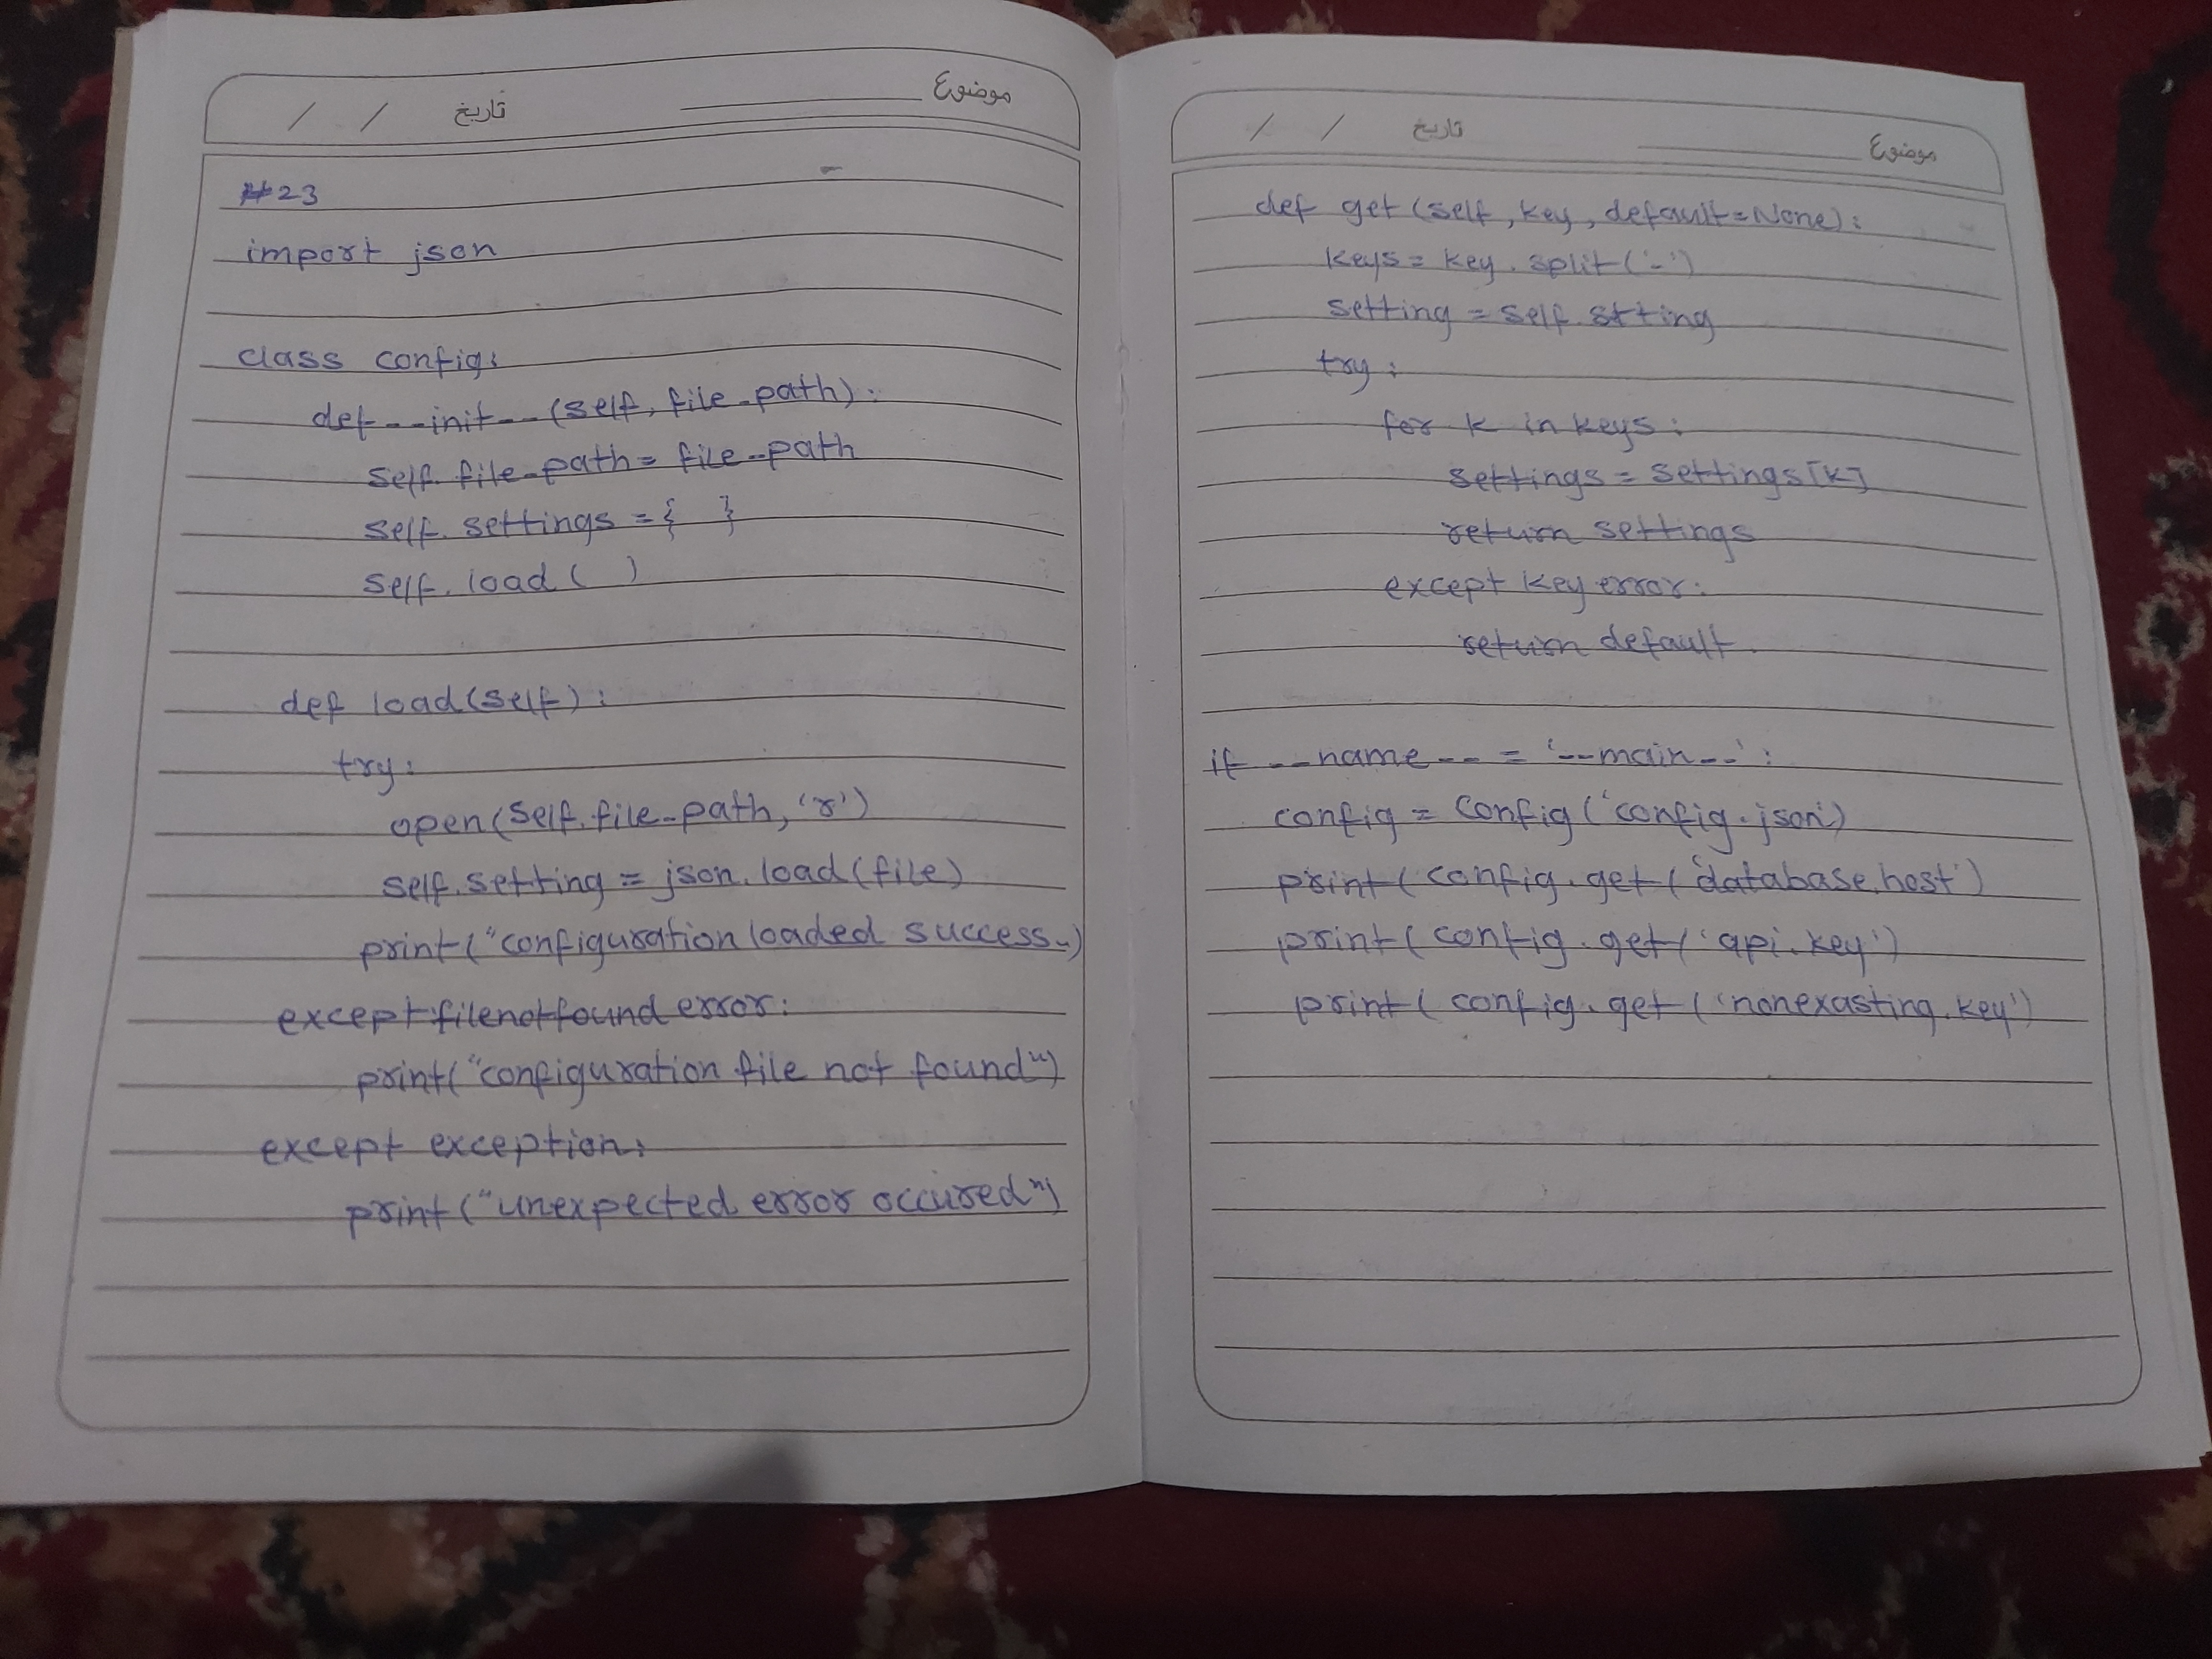 / / تاريخ موضوع
#23
import json
class config:
def __init__(self, file_path):
self.file_path = file_path
self.settings = { }
self.load( )
def load(self):
try:
open(self.file_path, 'r')
self.setting = json.load(file)
print("configuration loaded success")
except filenotfound error:
print("configuration file not found")
except exception:
print("unexpected error occured")
/ / تاريخ موضوع
def get(self, key, default=None):
keys = key.split('-')
setting = self.stting
try:
for k in keys:
settings = settings[k]
return settings
except key error:
return default.
if __name__ = '__main__':
config = Config('config.json')
print(config.get('database.host')
print(config.get('api.key')
print(config.get('nonexasting.key')